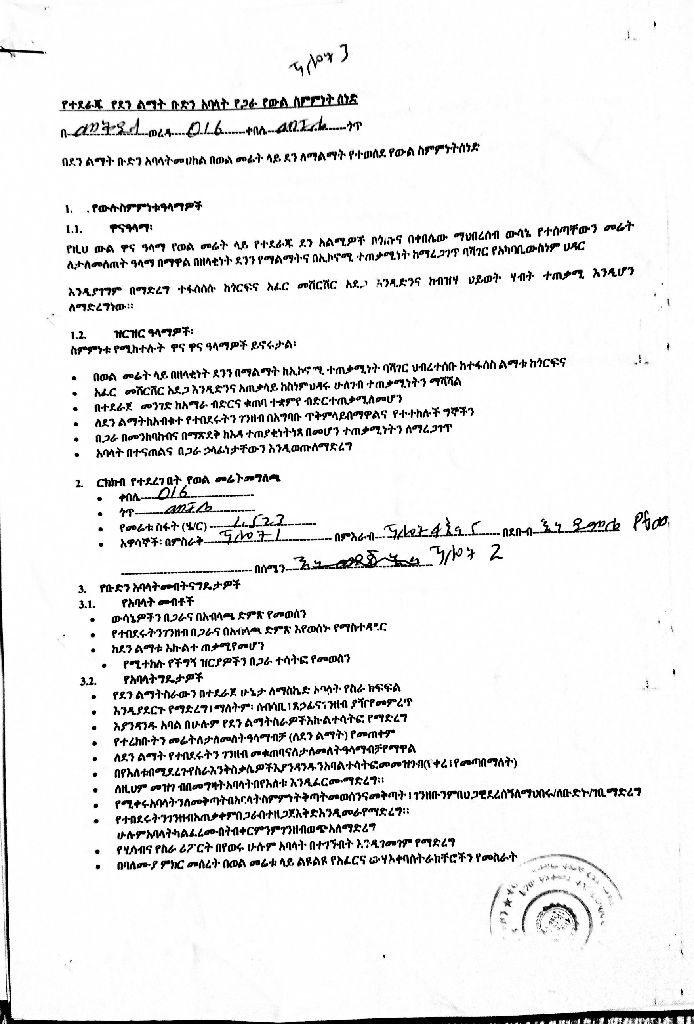 የተደራጁ የደን ልማት ቡድን አባላት የጋራ የውል ስምምነት ሰነድ
በ ወረዳ 016 ቀበሌ ጎጥ
በደን ልማት ቡድን አባላትመሀከል በወል መሬት ላይ ደን ለማልማት የተወሰደ የውል ስምምነትሰነድ
1. .የውሉስምምነቱዓላማዎች
1.1. ዋናዓላማ፡
የዚህ ውል ዋና ዓላማ የወል መሬት ላይ የተደራጁ ደን አልሚዎች በጎጡና በቀበሌው ማህበረሰብ ውሳኔ የተሰጣቸውን መሬት
ለታለመለት ዓላማ በማዋል በዘላቂነት ደንን የማልማትና በኢኮኖሚ ተጠቃሚነት ከማረጋገጥ ባሻገር የአካባቢውስነም ህዳር
እንዲያገግም በማድረግ ተፋሰሱ ከጎርፍና አፈር መሸርሸር አደጋ እንዲድንና ከብዝሃ ህይወት ሃብት ተጠቃሚ እንዲሆን
ለማድረግነው፡፡
1.2. ዝርዝር ዓላማዎች፡
ስምምነቱ የሚከተሉት ዋና ዋና ዓላማዎች ይኖሩታል፡
• በወል መሬት ላይ በዘላቂነት ደንን በማልማት ከኢኮኖሚ ተጠቃሚነት ባሻገር ህብረተሰቡ ከተፋሰስ ልማቱ ከጎርፍና
• አፈር መሸርሸር አደጋ እንዲድንና አጠቃላይ ከስነምህዳሩ ሁለገብ ተጠቃሚነትን ማሻሻል
• በተደራጀ መንገድ ከአማራ ብድርና ቁጠባ ተቋምየ ብድርተጠቃሚለመሆን
• ለደን ልማትከአብቁተ የተበደሩትን ገንዘብ በአግባቡ ጥቅምላይበማዋልና የተተከሉት ችግኞችን
• በጋራ በመንከባከብና በማጽደቅ ከእዳ ተጠያቂነትነጻ በመሆን ተጠቃሚነትን ለማረጋገጥ
• አባላት በተናጠልና በጋራ ኃላፊነታቸውን እንዲወጡለማድረግ
2. ርክክብ የተደረገበት የወል መሬትመግለጫ
• ቀበሌ 016
• ጎጥ
• የመሬቱ ስፋት (ሄ/ር) 1.523
• አዋሳኞች፡ በምስራቅ ፓሎት 1 በምእራብ ፓሎት 4 እና 5 በደቡብ
በሰሜን ፓሎት 2
3. የቡድን አባላትመብትናግዴታዎች
3.1. የአባላት መብቶች
• ውሳኔዎችን በጋራና በአብላጫ ድምጽ የመወሰን
• የተበደሩትንገንዘብ በጋራና በአብላጫ ድምጽ እየወሰኑ የማስተዳደር
• ከደን ልማቱ እኩልተ ጠቃሚየመሆን
• የሚተከሉ የችግኝ ዝርያዎችን በጋራ ተሳትፎ የመወሰን
3.2. የአባላትግዴታዎች
• የደን ልማትስራውን በተደራጀ ሁኔታ ለማስኬድ አባላት የስራ ክፍፍል
• እንዲያደርጉ የማድረግ፣ማለትም፡ ሰብሳቢ፣ጸኃፊና፣ገንዘብ ያዥየመምረጥ
• እያንዳንዱ አባል በሁሉም የደን ልማትስራዎችእኩልተሳትፎ የማድረግ
• የተረከቡትን መሬትለታለመለትዓላማብቻ (ለደን ልማት) የመጠቀም
• ለደን ልማት የተበደሩትን ገንዘብ መቁጠባናለታለመለትዓላማብቻየማዋል
• በየእለቱበሚደረጉየስራእንቅስቃሴዎችእያንዳንዱንአባልተሳትፎመመዝገብ(ቀሪ፣የመጣበማለት)
• ለዚህም መዝገብበመግዛትአባላትበየእለቱ እንዲፈርሙማድረግ፡፡
• የሚቀሩአባላትንለመቅጣትበአባላትስምምነትቅጣትመወሰንናመቅጣት፣
• የተበደሩትንገንዘብአጠቃቀምበጋራበተዘጋጀእቅድእንዲመራየማድረግ፡፡
ሁሉምአባላትካልፈረሙበትብቀርምንምገንዘብወጭአለማድረግ
• የሂሳብና የስራ ሪፖርት በየወሩ ሁሉም አባላት በተገኙበት እንዲገመገም የማድረግ
• በባለሙያ ምክር መሰረት በወል መሬቱ ላይ ልዩልዩ የአፈርና ውሃእቀባስትራክቸሮችን የመስራት